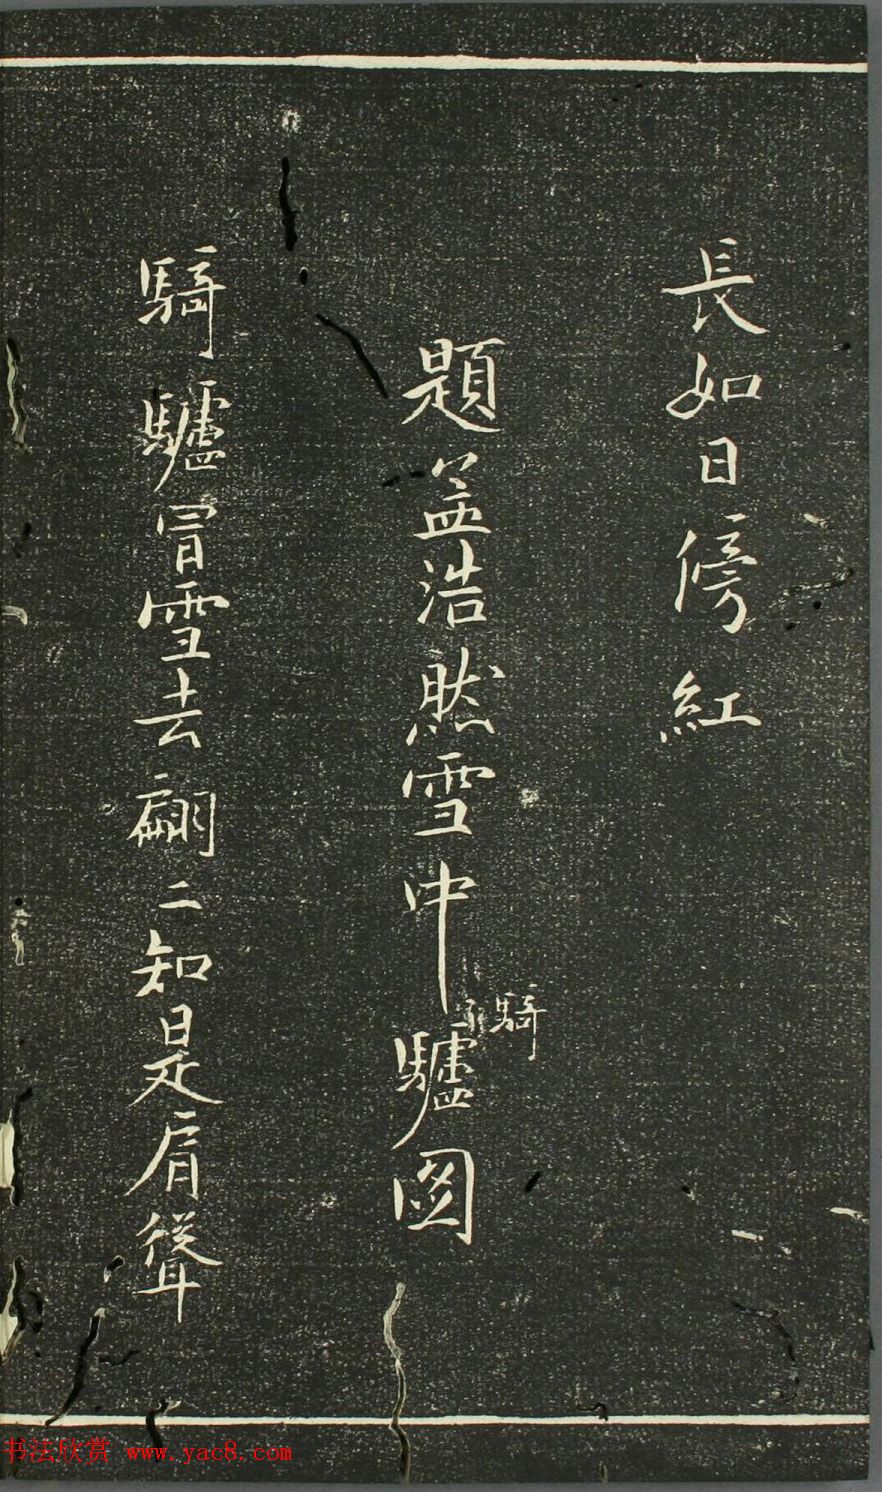 長如日傍紅
題孟浩然雪中驢圖
騎
騎驢冒雪去翩二知是肩聳
书法欣赏 www.yac8.com